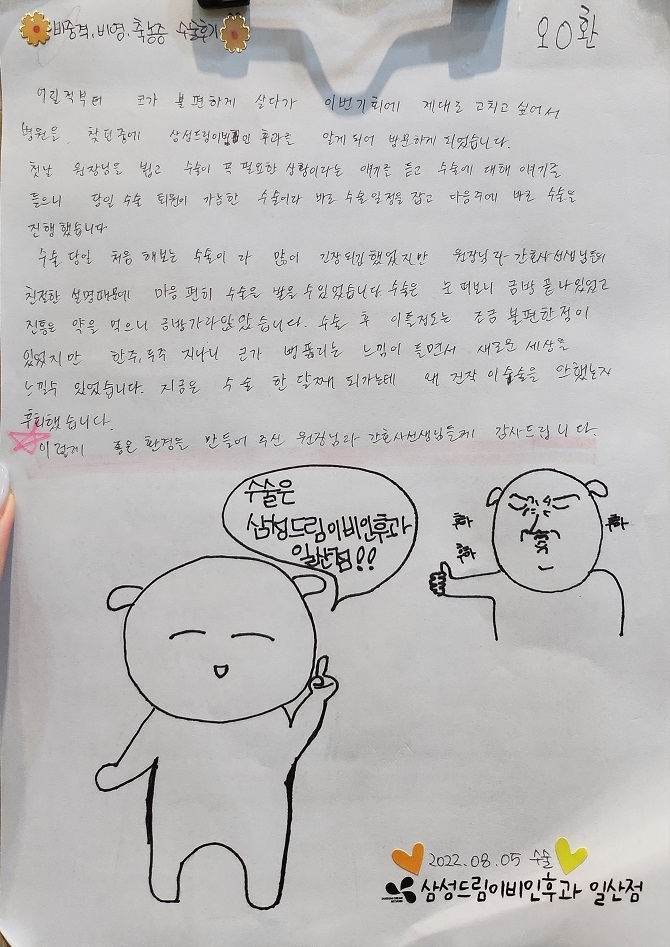 비중격, 비염, 축농증 수술후기
오O환
어릴적부터 코가 불편하게 살다가 이번기회에 제대로 고치고 싶어서
병원을 찾던중에 삼성드림이비인후과를 알게 되어 방문하게 되었습니다.
첫날 원장님을 뵙고 수술이 꼭 필요한 상황이라는 얘기를 듣고 수술에 대해 이야기를
들으니 당일 수술 퇴원이 가능한 수술이라 바로 수술일정을 잡고 다음주에 바로 수술을
진행했습니다
수술 당일 처음 해보는 수술이라 많이 긴장되긴했었지만 원장님과 간호사선생님들의
친절한 설명때문에 마음 편히 수술을 받을 수 있었습니다. 수술은 눈 떠보니 금방 끝나있었고
진통은 약을 먹으니 금방가라앉았습니다. 수술 후 이틀정도는 조금 불편한점이
있었지만 한주, 두주 지나니 코가 뻥뚫리는 느낌이 들면서 새로운 세상을
느낄수 있었습니다. 지금은 수술 한 달째 되가는데 왜 진작 이 수술을 안했는지
후회했습니다.
이렇게 좋은 환경을 만들어 주신 원장님과 간호사선생님들께 감사드립니다.
수술은
삼성드림이비인후과
일산점!!
후하
후하
후하
2022.08.05 수술
삼성드림이비인후과 일산점